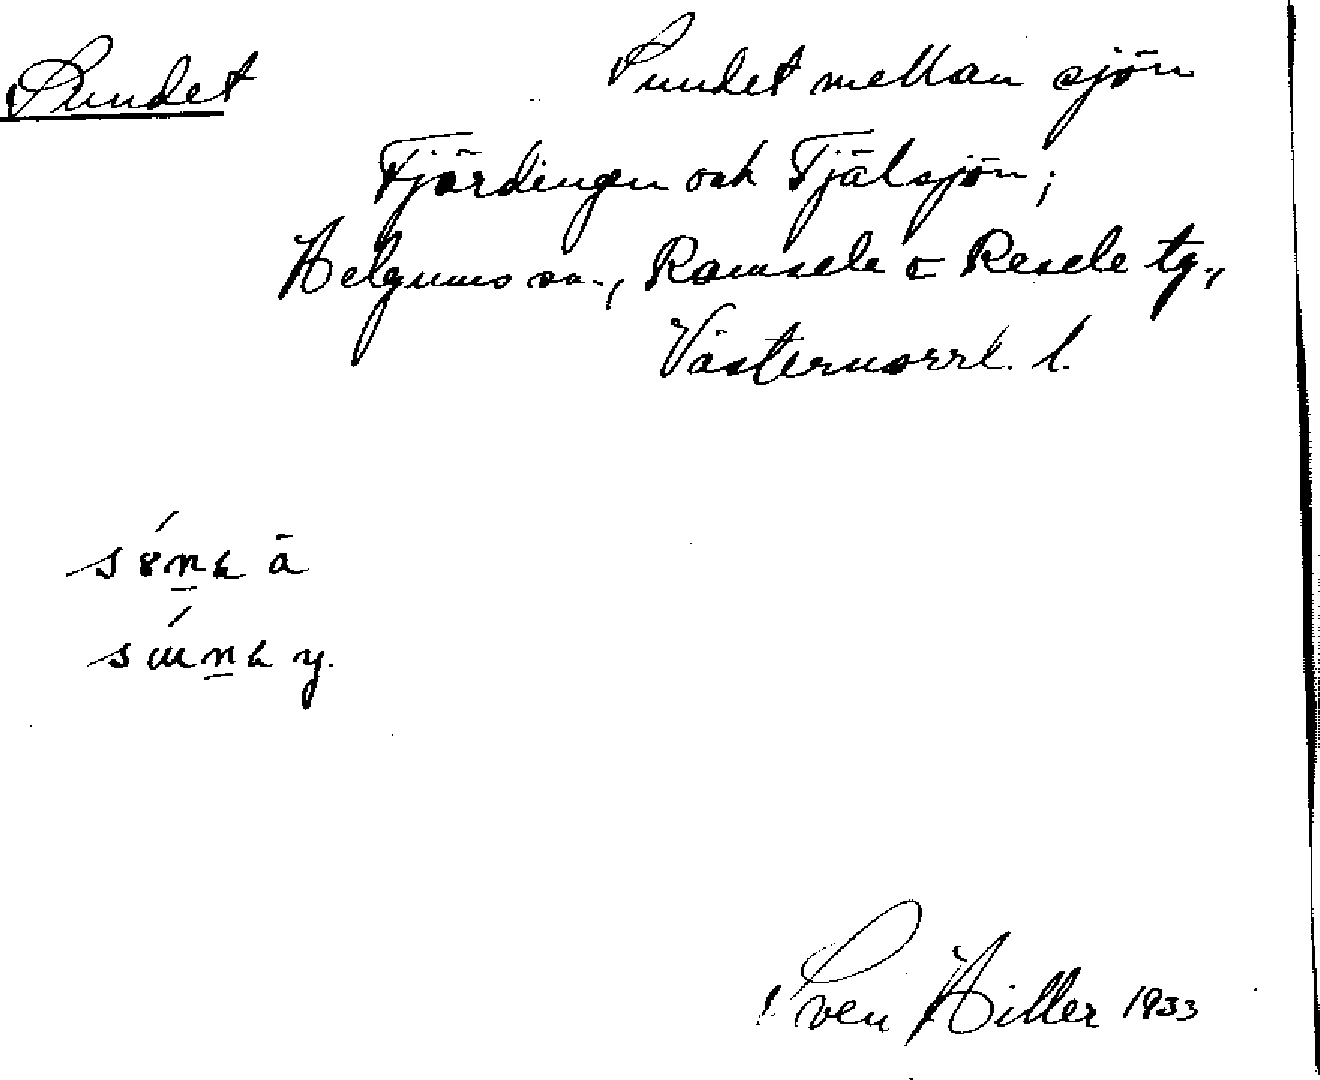 Sundet
Sundet mellan sjön
Fjärdingen och Fjälsjön;
Helgums sn., Ramsele o Resele tg.,
Västernorrl. l.
Sven Hiller 1933